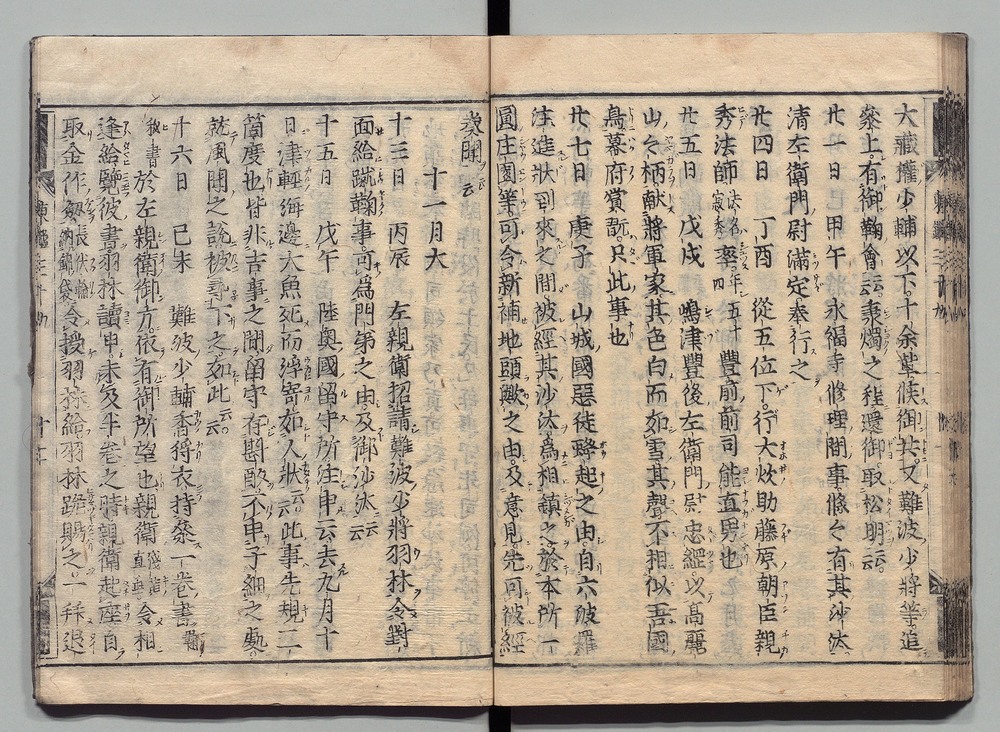 大藏權少輔以下十余輩候御共又難波少將等追
參上有御鞠會云云秉燭之程還御取松明云云
廿一日己甲午永福寺修理間事條々有其沙汰
清左衛門尉滿定奉行之
廿四日 丁酉 從五位下行大炊助藤原朝臣親
秀法師法名寂秀卒年五十四豐前前司能直男也
廿五日 戊戌 嶋津豐後左衛門尉忠綱以高麗
山之柄献將軍家其色白而如雪其聲不相似吾國
鳥幕府賞翫只此事也
廿七日 庚子 山城國惡徒蜂起之由自六波羅
注進狀到來之間被經其沙汰為相鎮之於本所一
圓庄園等可令新補地頭歟之由及意見先可被經
奏聞云云
十一月大
十三日 丙辰 左親衛招請難波少將羽林令對
面給蹴鞠事可為門弟之由及御沙汰云云
十五日 戊午 陸奧國留守所注申云去九月十
日津輕海邊大魚死而浮寄如人狀云云此事先規二
箇度也皆非吉事之間留守存斟酌不申子細之處
就風聞之說被尋下之如此云云
十六日 己未 難波少輔香狩衣持參一卷書鞠
秘書於左親衛御方依有御所望也親衛淺黃直垂令相
逢給覽彼書羽林讀申未及半卷之時親衛起座自
取金作劔帳伏輪納錦袋令授羽林給羽林跪賜之一拜退